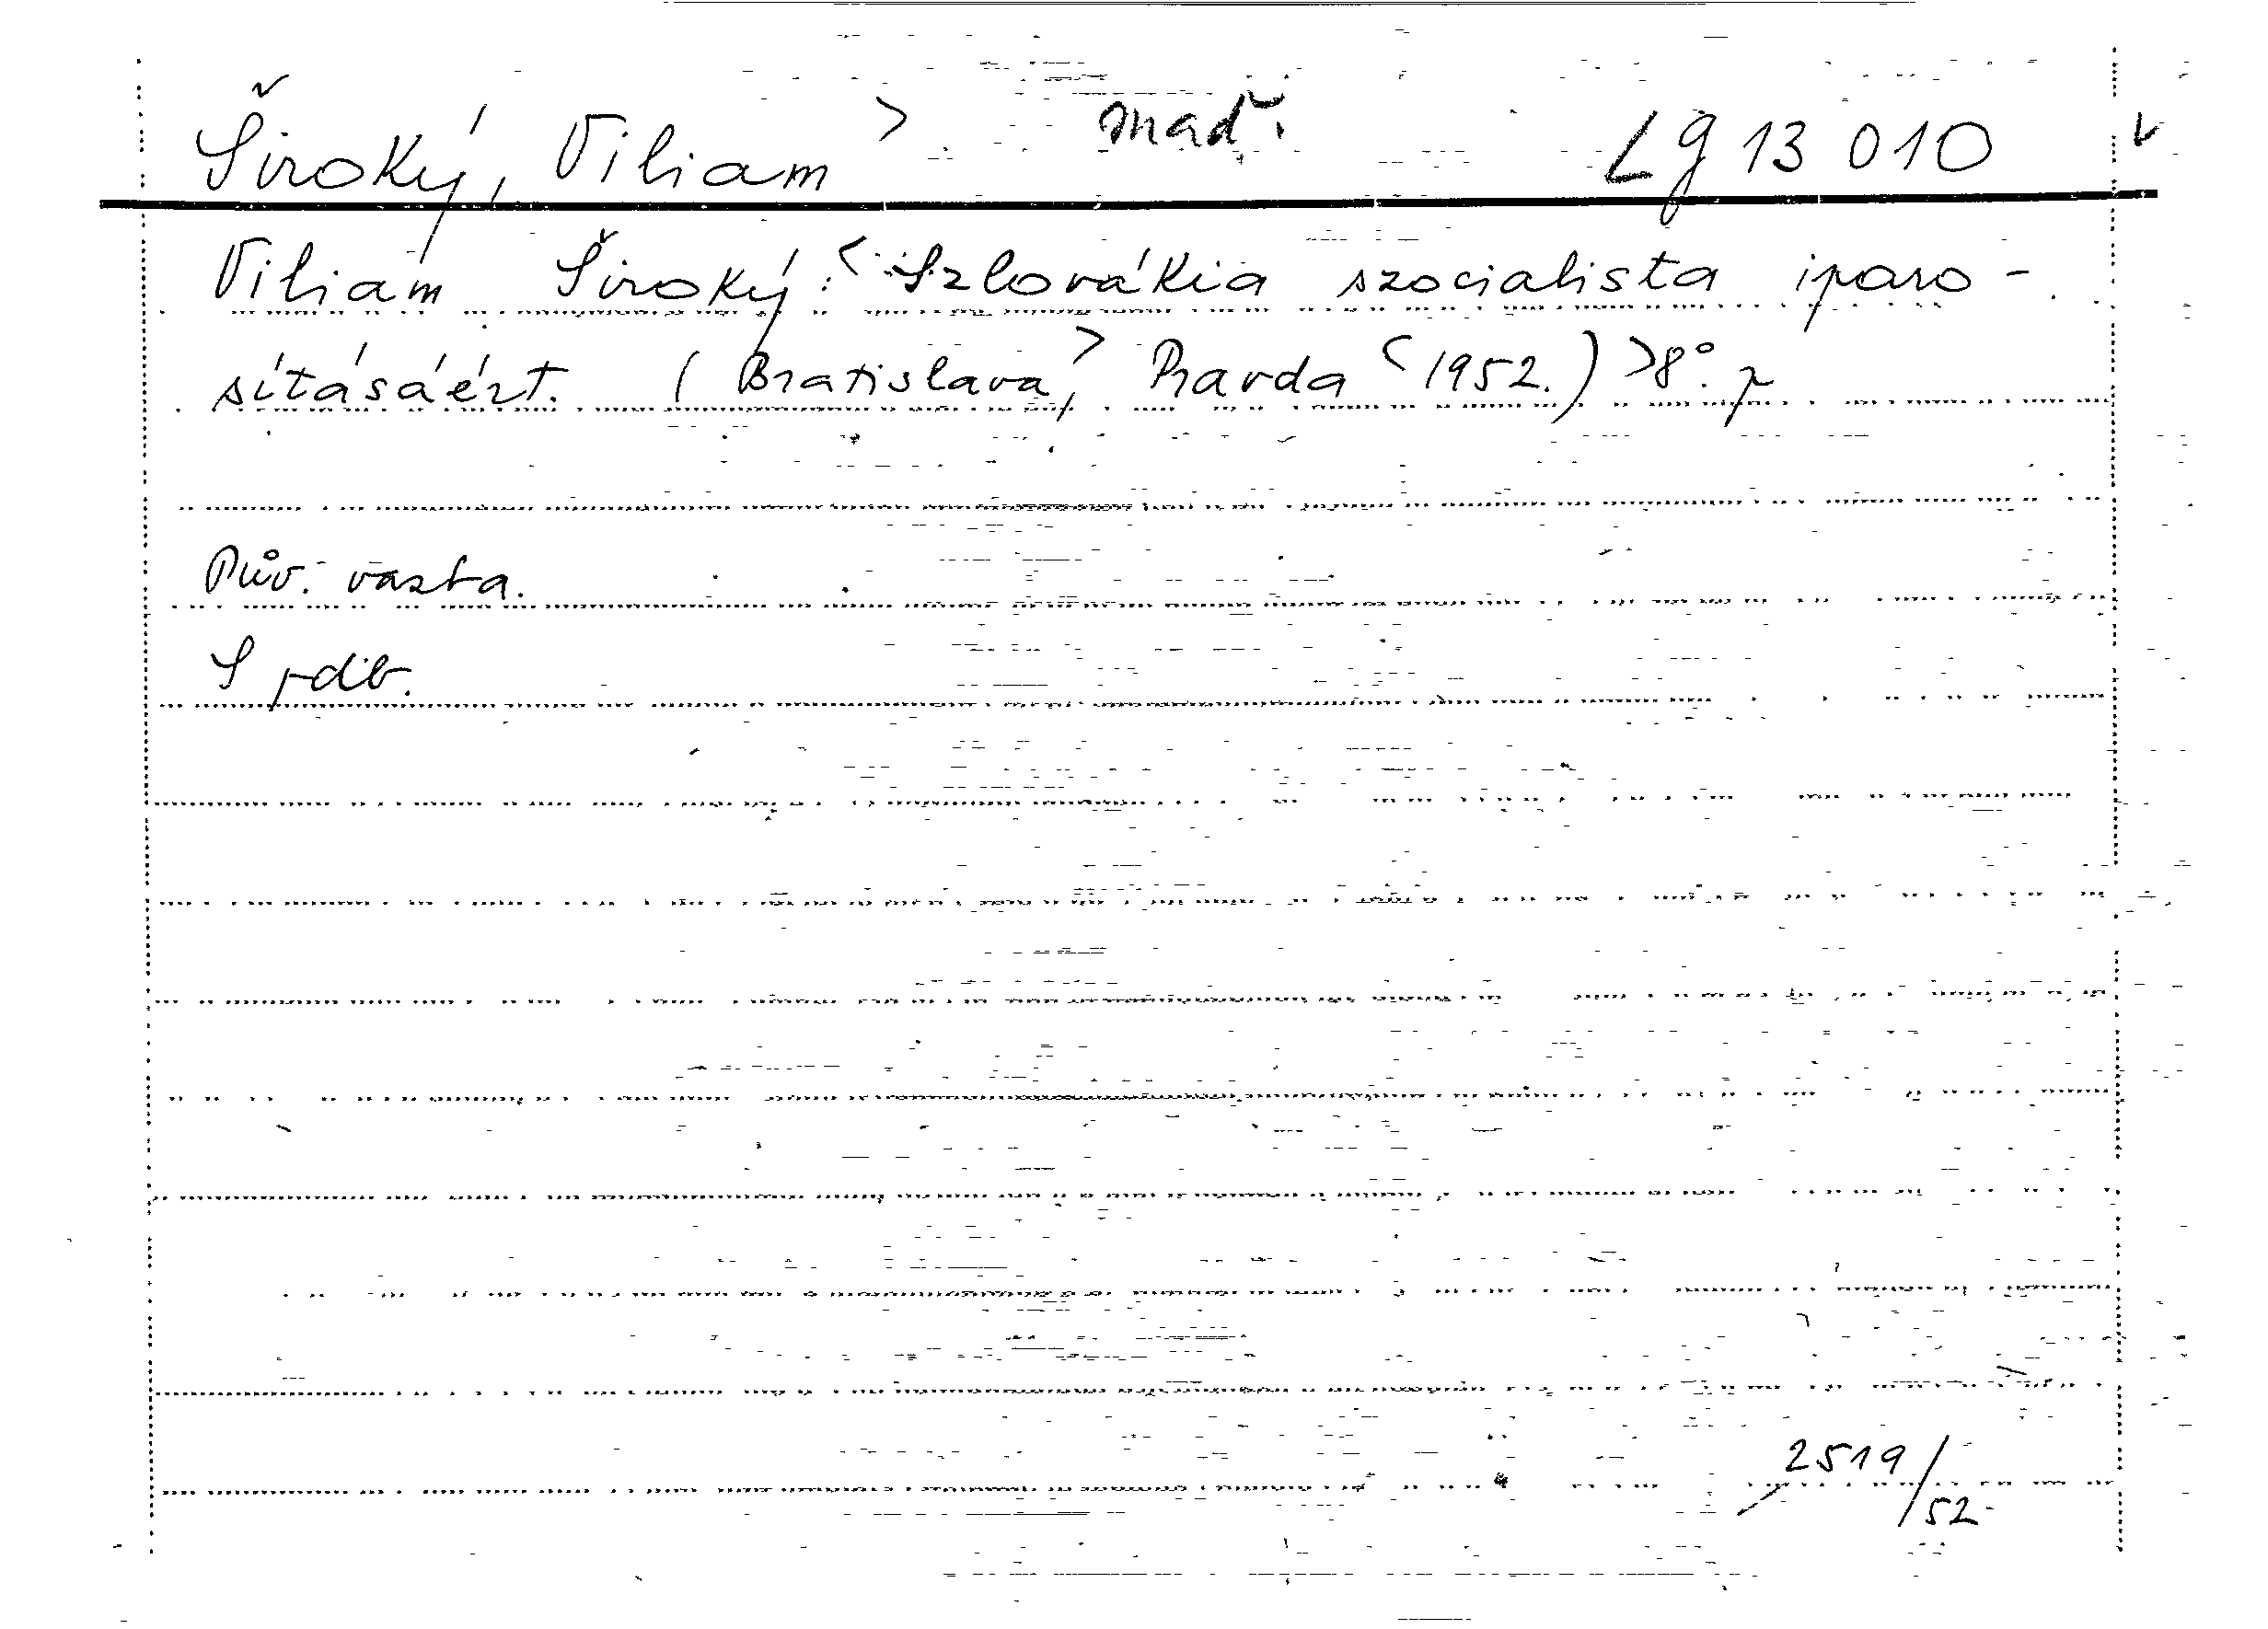 Široký, Viliam > maď. Lg 13 010
Viliam Široký: < Szlovákia szocialista iparo-
sításáért. (Bratislava, > Pravda < 1952.) > 8°. p
Pův. vazba.
S pdb.
2519/52